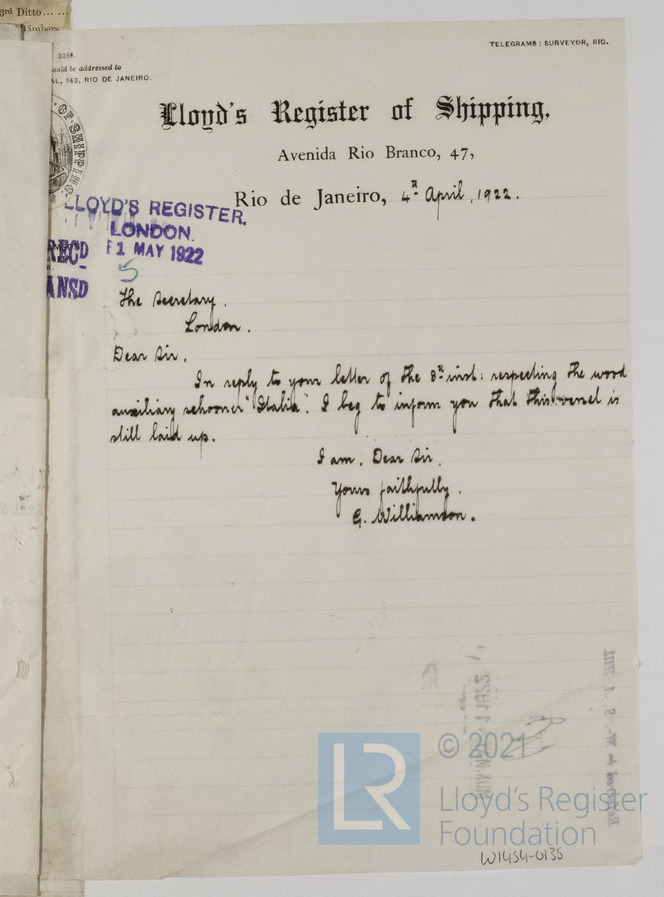 3rd Ditto... ...
Timbers
3398.
ould be addressed to
AL, 563, RIO DE JANEIRO.
TELEGRAMS: SURVEYOR, RIO.
OF SHIPPING
Lloyd's Register of Shipping,
Avenida Rio Branco, 47,
Rio de Janeiro, 4th April, 1922.
LLOYD'S REGISTER.
LONDON.
REC'D 1 MAY 1922
ANSD
5
The Secretary.
London.
Dear Sir.
In reply to your letter of the 8th inst: respecting the wood
auxiliary schooner "Italia". I beg to inform you that this vessel is
still laid up.
I am. Dear Sir.
Yours faithfully.
G. Williamson.
LR
© 2021
Lloyd's Register
Foundation
W1454-0135